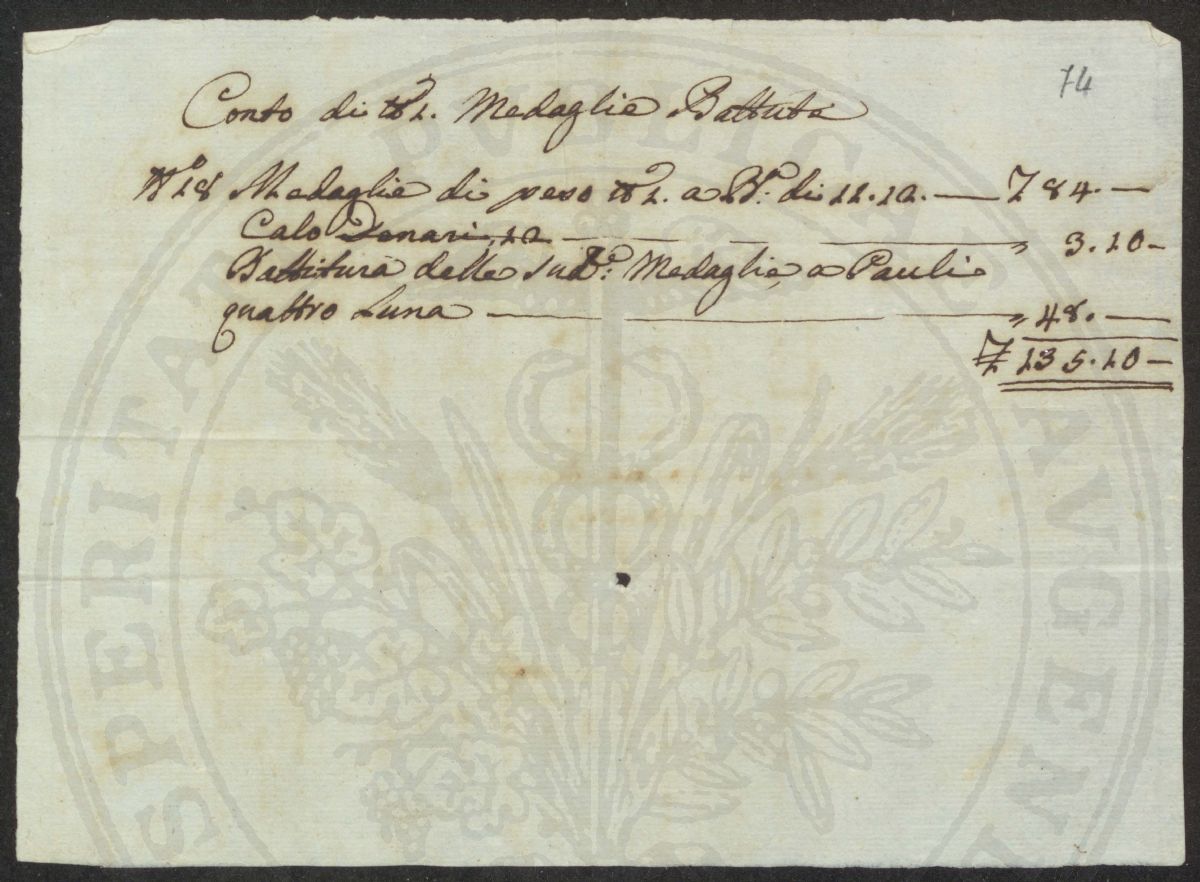 74
Conto di ℔ 1. Medaglie Battute
N° 18 Medaglie di peso ℔ 1. a di 11.12. — 84. —
Calo Denari 12 — — — " 3.10 —
Battitura delle Sud.e Medaglie a Pauli
quattro L'una — — — " 48. —
135.10 —
PUBLICAE
SPERITATE
AVGEN